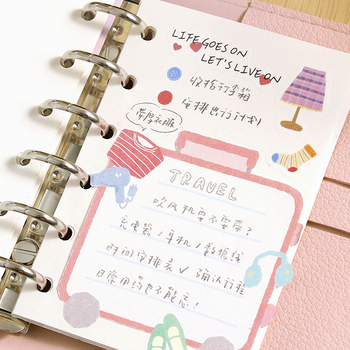 LIFE GOES ON
LET'S LIVE ON
收拾行李箱
安排出行计划
带厚衣服
TRAVEL
吹风机要不要带?
充电器/耳机/数据线
时间安排表✓确认行程
日常用药也不能忘!